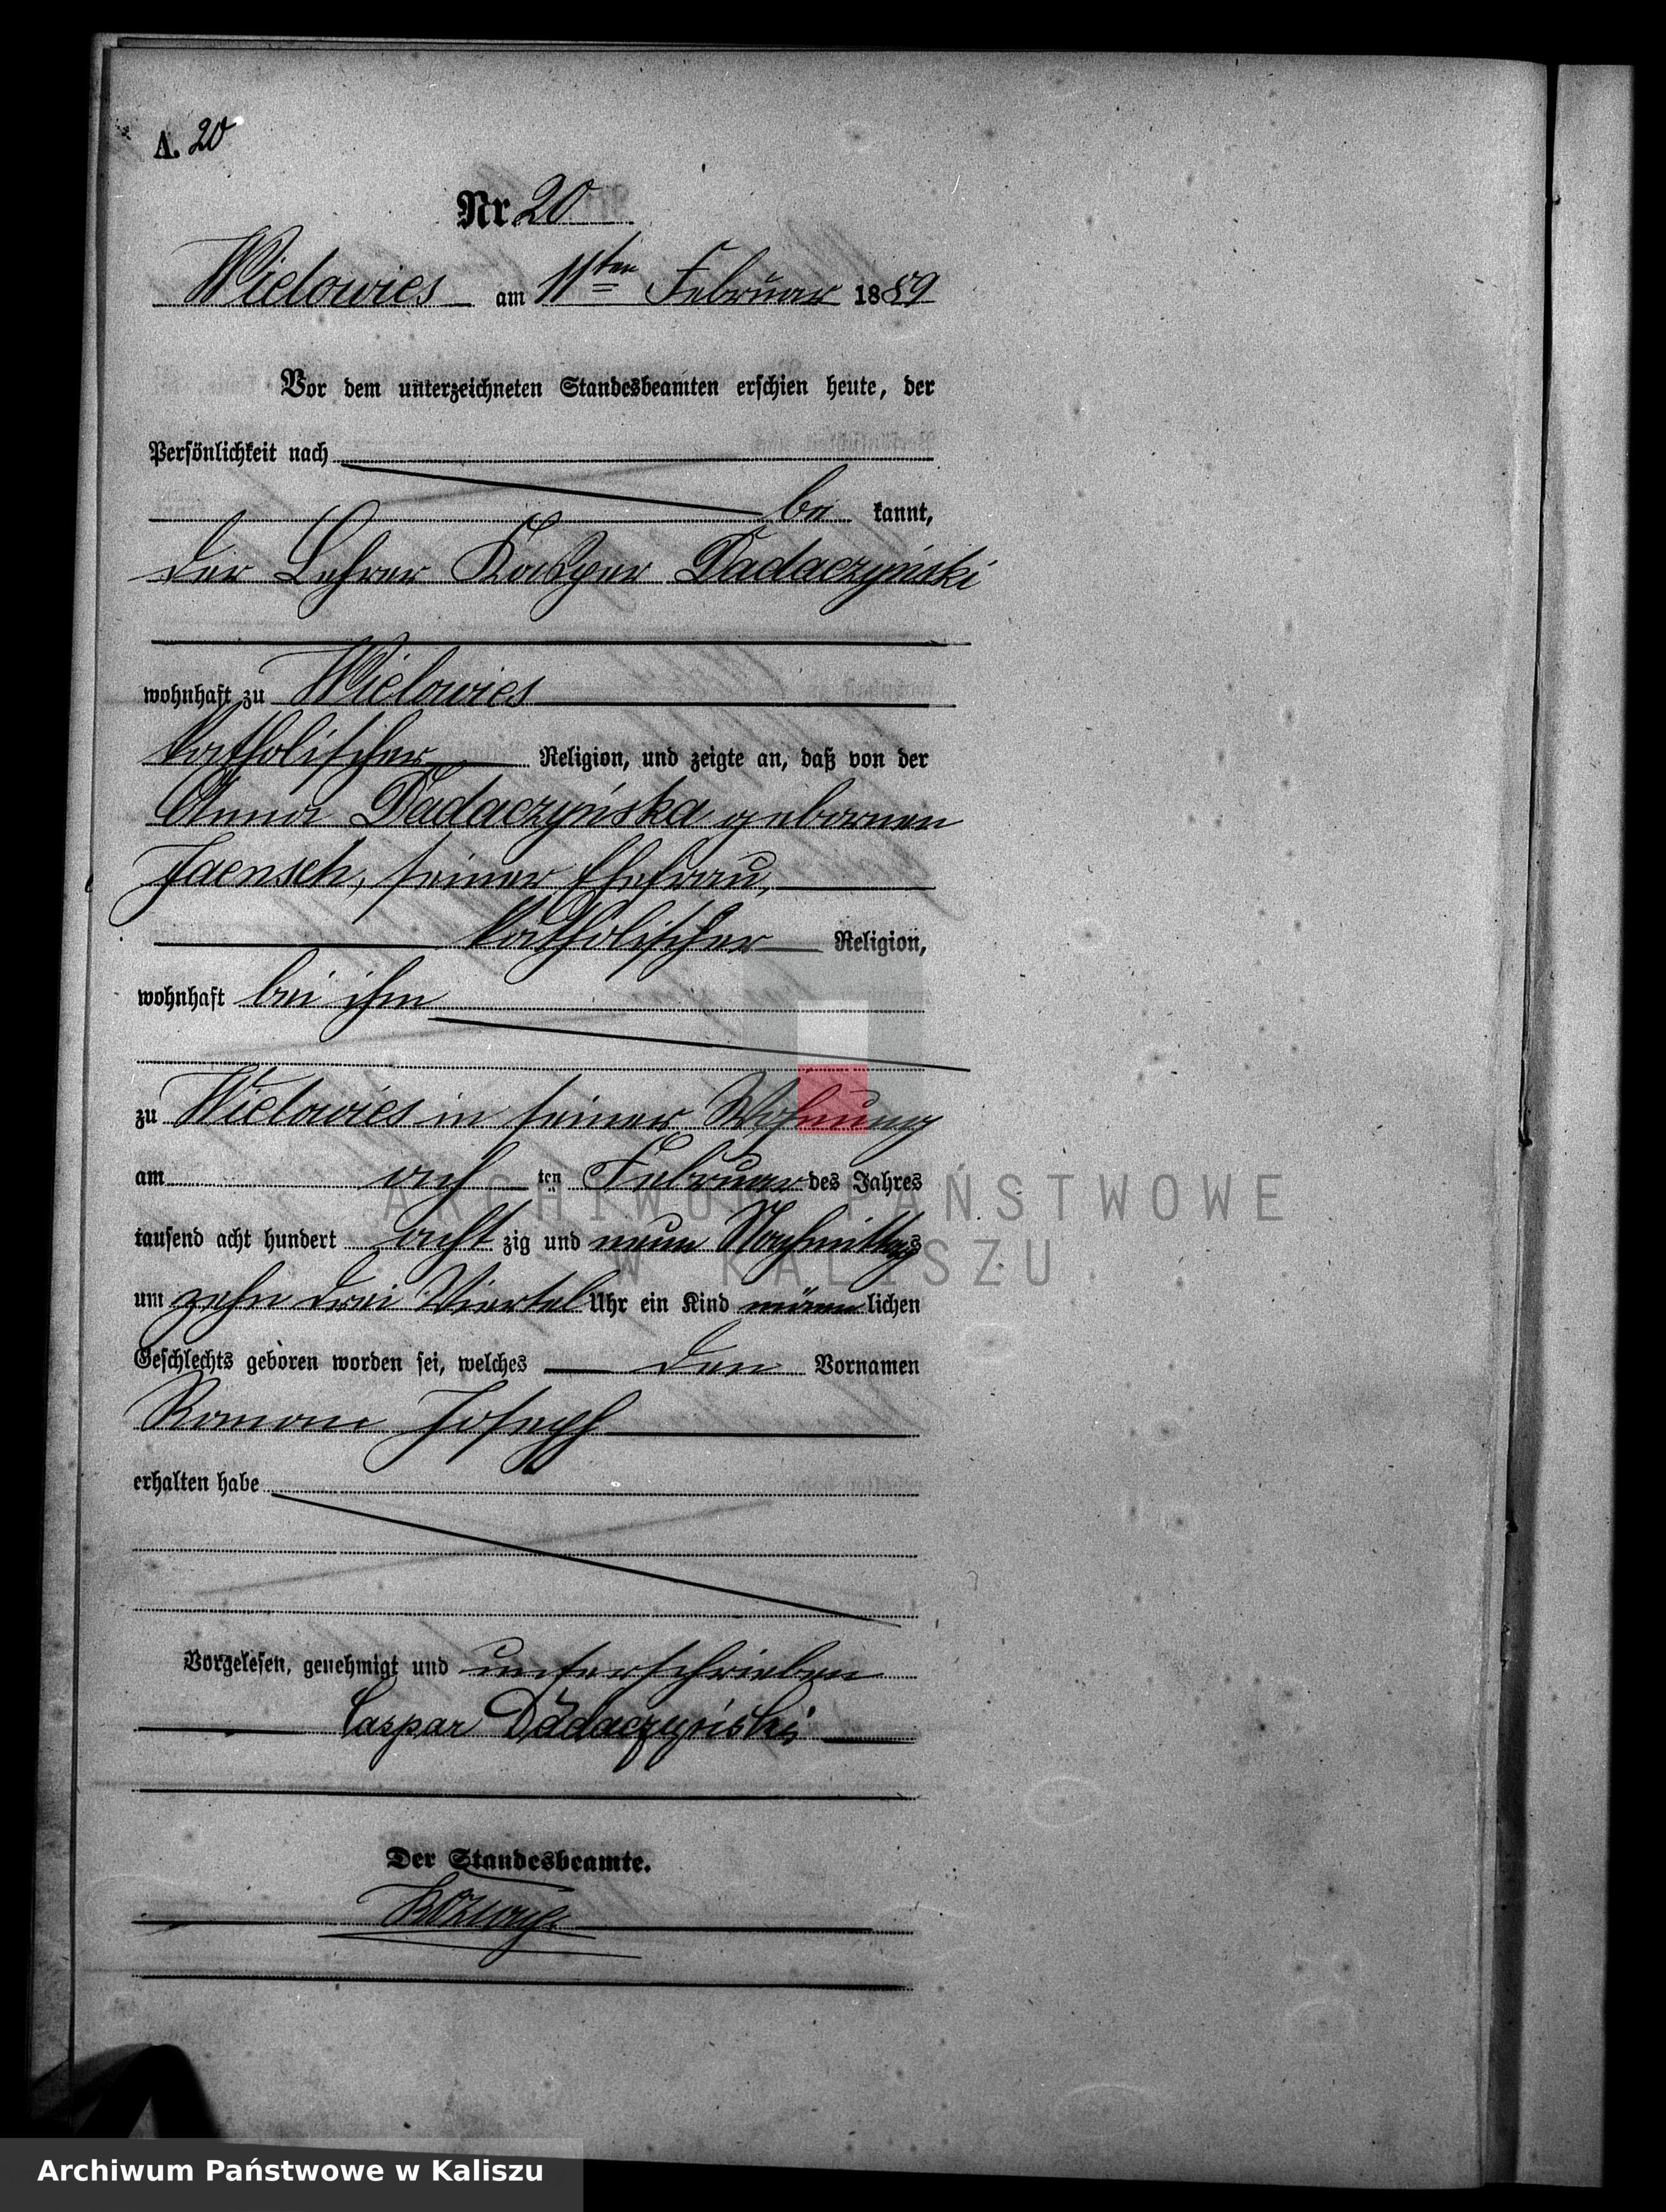 A. 20
Nr. 20
Wielowies am 11ten Februar 1889
Vor dem unterzeichneten Standesbeamten erschien heute, der
Persönlichkeit nach
be kannt,
der Lehrer Kasper Dadaczyński
wohnhaft zu Wielowies
katholischer Religion, und zeigte an, daß von der
Anna Dadaczyńska geborenen
Jaensch, seiner Ehefrau,
katholischer Religion,
wohnhaft bei ihm
zu Wielowies in seiner Wohnung
am ach ten Februar des Jahres
tausend acht hundert acht zig und neun Nachmittags
um zehn drei Viertel Uhr ein Kind männ lichen
Geschlechts geboren worden sei, welches den Vornamen
Roman Joseph
erhalten habe
Vorgelesen, genehmigt und unterschrieben
Caspar Dadaczyński
Der Standesbeamte.
ARCHIWUM PAŃSTWOWE
W KALISZU
Archiwum Państwowe w Kaliszu